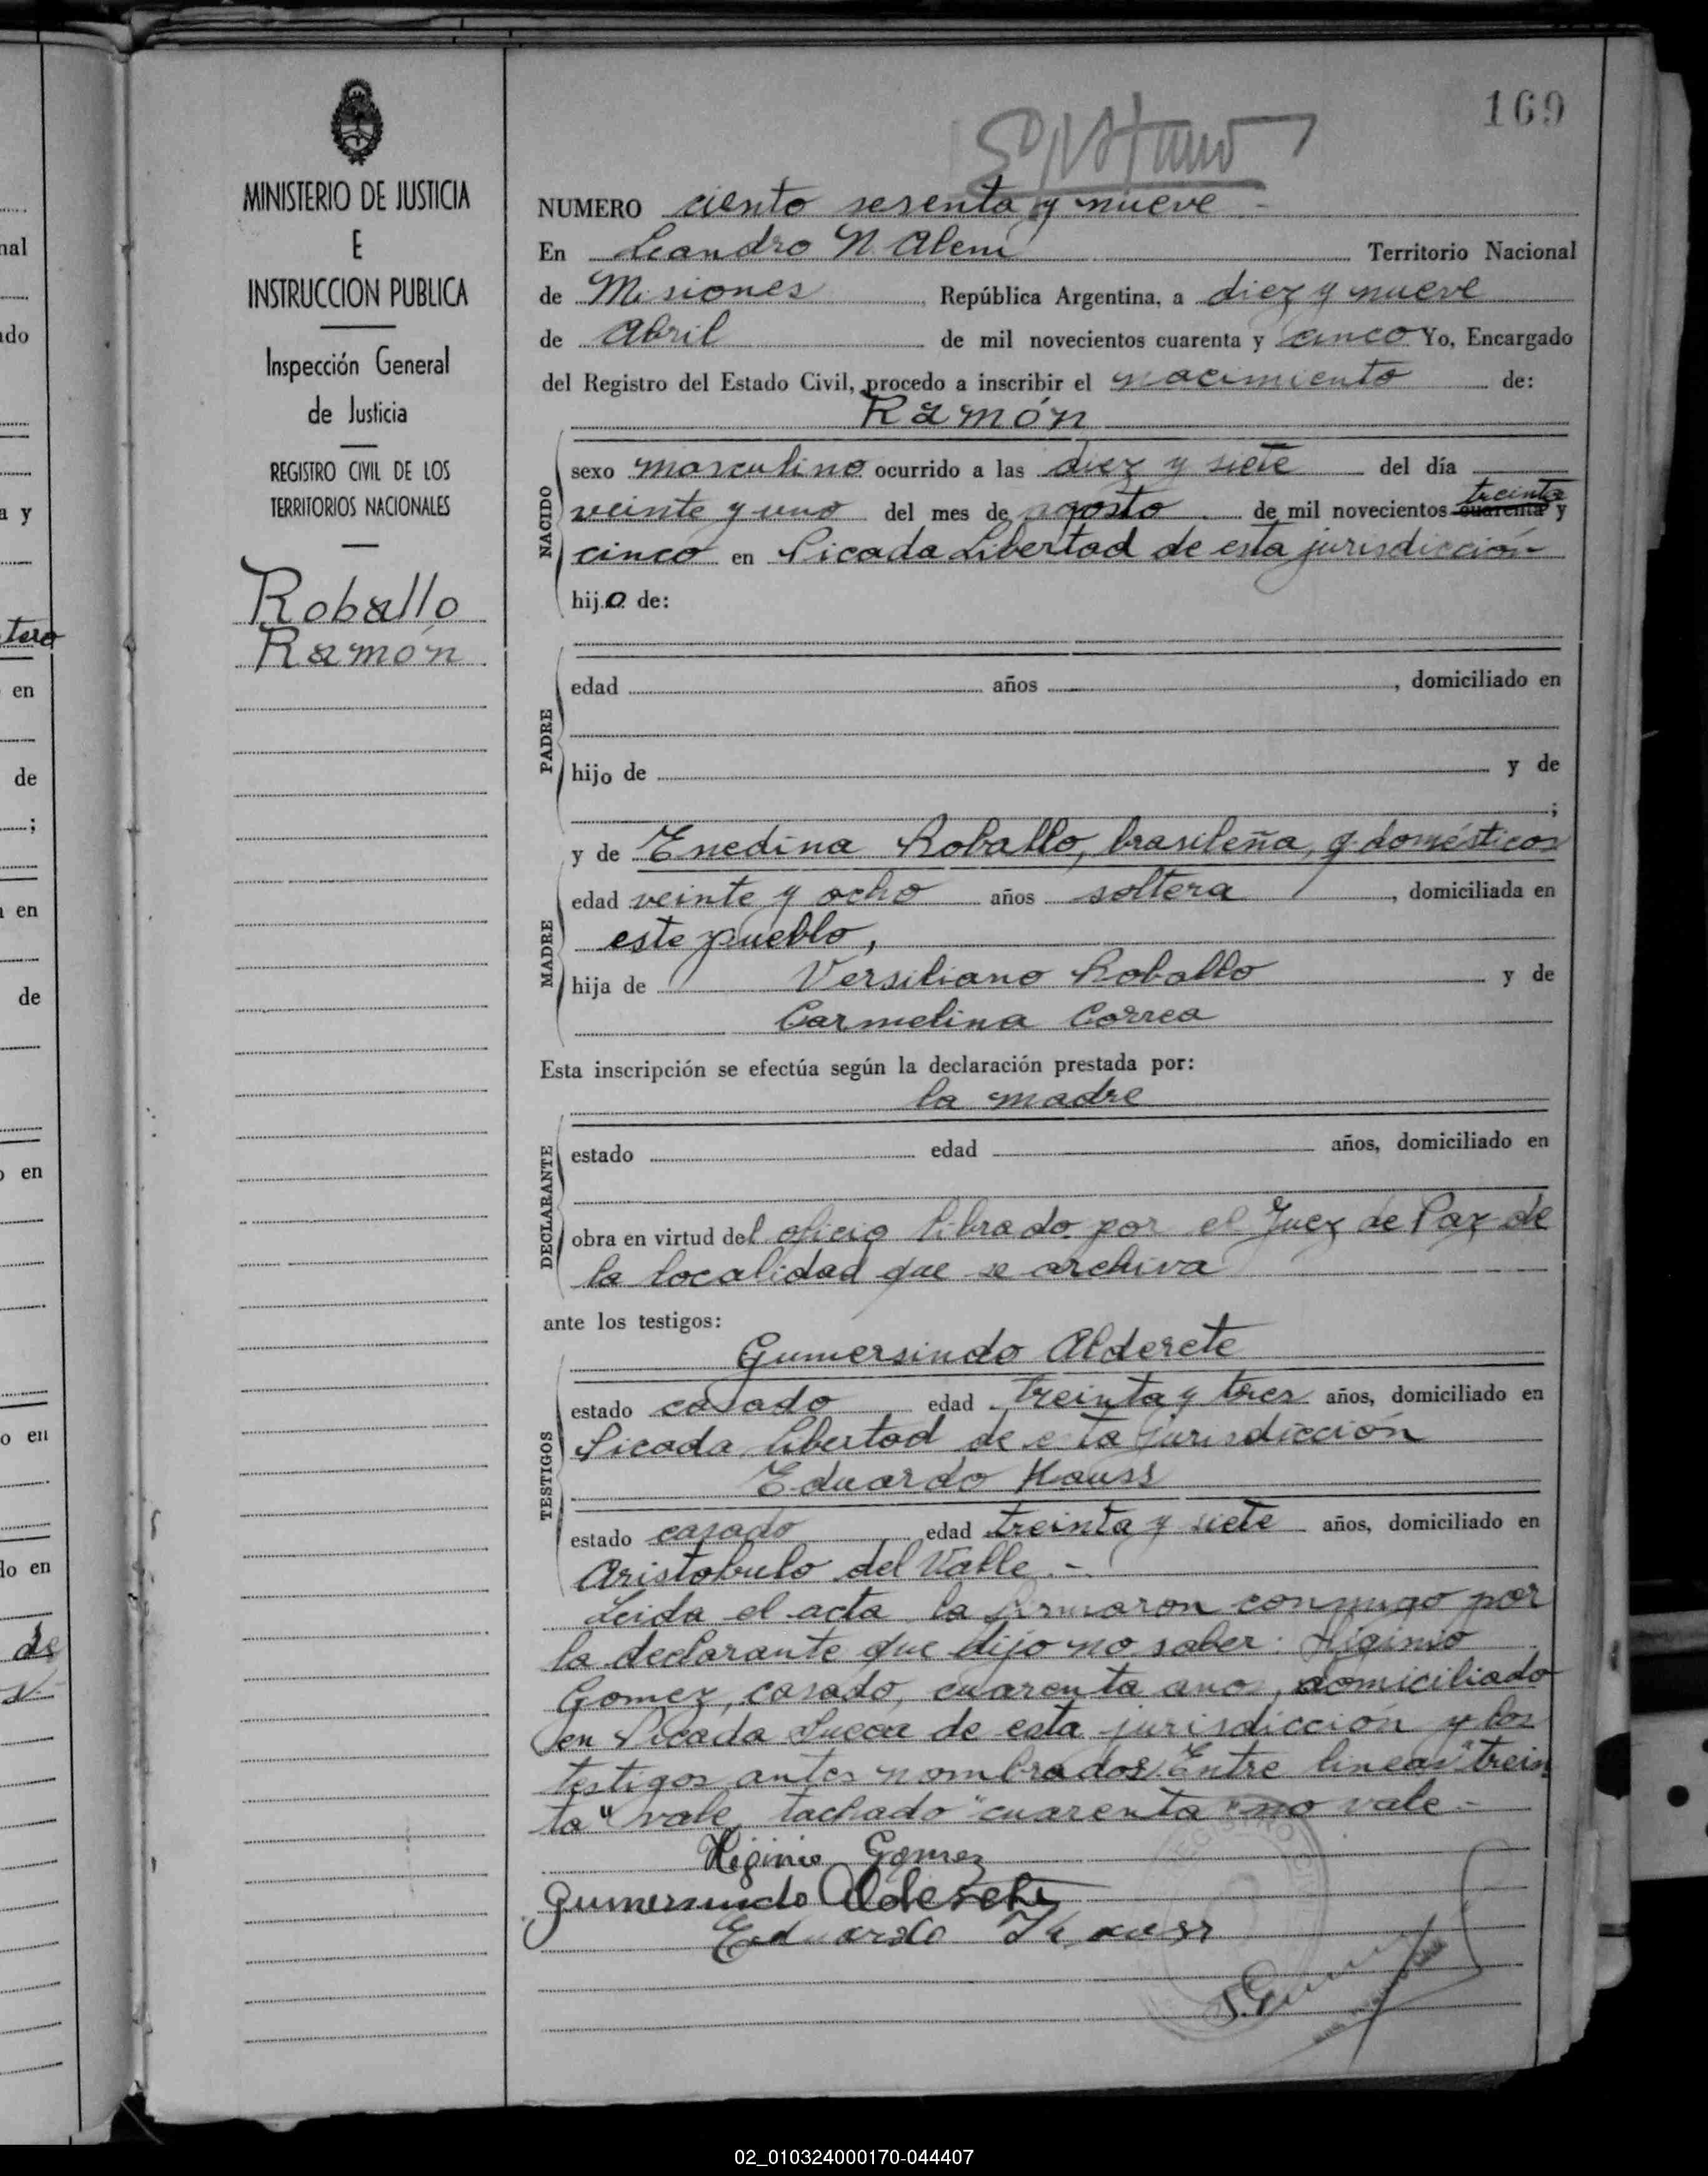 169
NUMERO ciento sesenta y nueve -
En Leandro N. Alem Territorio Nacional
de Misiones, República Argentina, a diez y nueve
de Abril de mil novecientos cuarenta y cinco Yo, Encargado
del Registro del Estado Civil, procedo a inscribir el nacimiento de:
Ramón
NACIDO
sexo masculino ocurrido a las diez y siete del día
treinta
veinte y uno del mes de agosto de mil novecientos cuarenta y
cinco en Picada Libertad de esta jurisdicción
hijo de:
PADRE
edad años , domiciliado en
hijo de y de
;
MADRE
y de Enedina Roballo, brasileña, q. domésticos
edad veinte y ocho años soltera , domiciliada en
este pueblo,
hija de Versiliano Roballo y de
Carmelina Correa
Esta inscripción se efectúa según la declaración prestada por:
la madre
DECLARANTE
estado edad años, domiciliado en
obra en virtud del oficio librado por el Juez de Paz de
la localidad que se archiva
ante los testigos:
TESTIGOS
Gumersindo Alderete
estado casado edad treinta y tres años, domiciliado en
Picada Libertad de esta jurisdicción
Eduardo Kauss
estado casado edad treinta y siete años, domiciliado en
Aristobulo del Valle. -
Leida el acta la firmaron conmigo por
la declarante que dijo no saber: Higinio
Gomez, casado, cuarenta años, domiciliado
en Picada Sueca de esta jurisdicción y los
testigos antes nombrados. Entre lineas "trein
ta" vale, tachado "cuarenta" no vale -
Higinio Gomez
Gumersindo Alderete
Eduardo Kauss
MINISTERIO DE JUSTICIA
E
INSTRUCCION PUBLICA
Inspección General
de Justicia
REGISTRO CIVIL DE LOS
TERRITORIOS NACIONALES
Roballo
Ramón
nal
ado
a y
tero
en
de
;
a en
de
o en
o en
do en
de
02_010324000170-044407